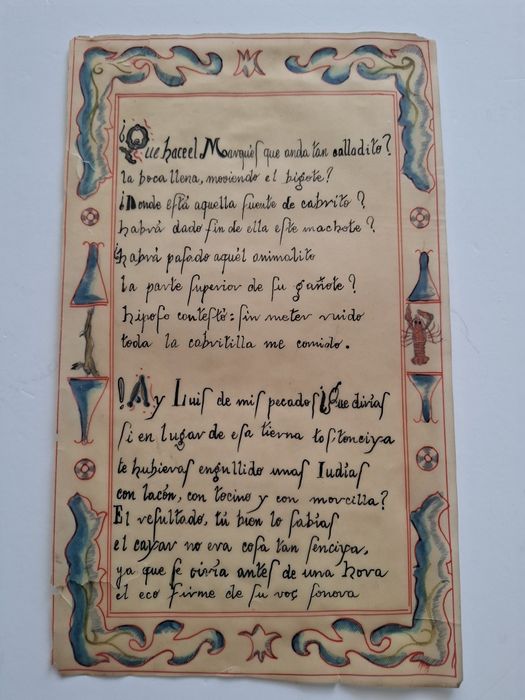 ¿Que hace el Marqués que anda tan calladito?
la boca llena, moviendo el bigote?
¿Donde está aquella fuente de cabrito?
habrá dado fin de ella este machote?
¿habrá pasado aquél animalito
la parte superior de su gañote?
hiposo contestó: sin meter ruido
toda la cabritilla me comido.
!Ay Luis de mis pecados! ¿Que dirías
si en lugar de esa tierna tostonciya
te hubieras engullido unas Iudías
con lacón, con tocino y con morcilla?
El resultado, tú bien lo sabías
el cayar no era cosa tan senciya,
ya que se oiría antes de una hora
el eco firme de su voz sonora